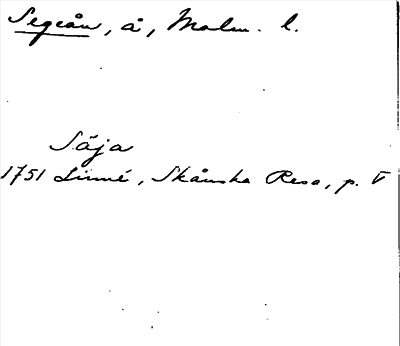 Segeån, å, Malm. l.
Säja
1751 Linné, Skånska Resa, p. V